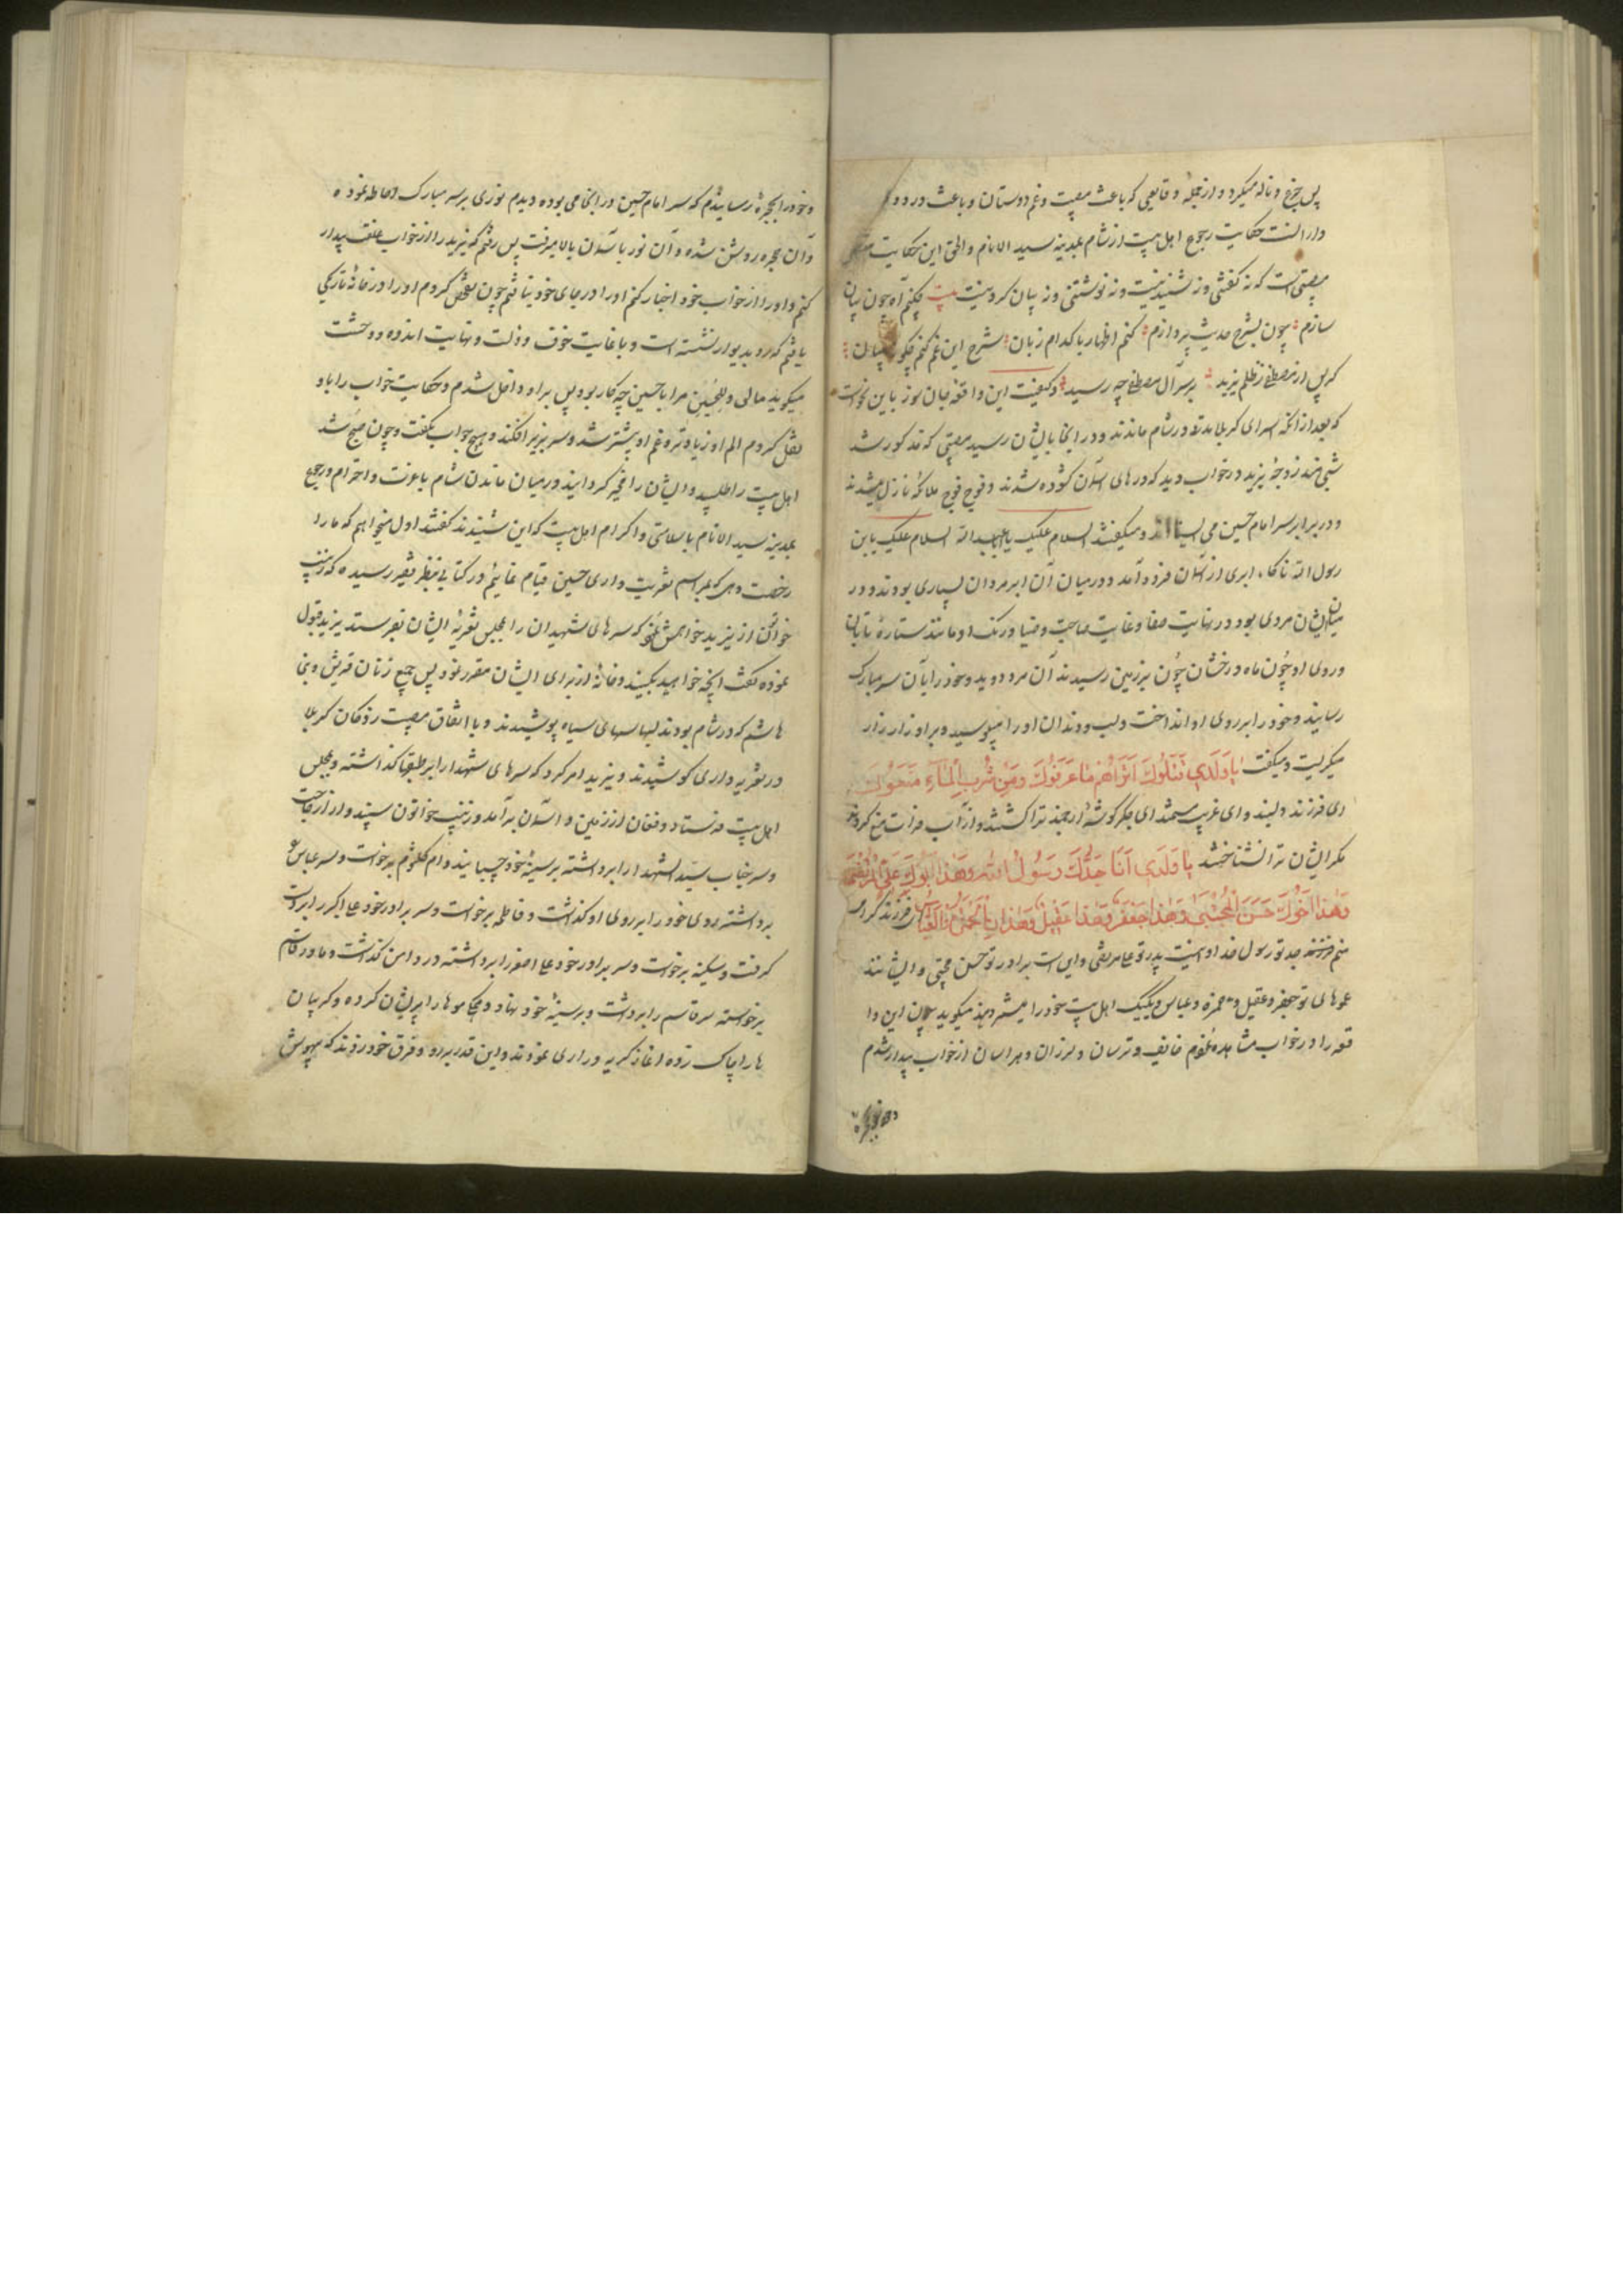 پس جزع و ناله میکرد و از جمله وقایعی که باعث مصیبت و غم دوستان و باعث درد و
دار است حکایت رجوع اهل بیت از شام بمدینه سید الانام و الحق این حکایت
مصیبتی است که نه گفتنی و نه شنیدنیست و نه نوشتنی و نه بیان کردنیست بیت چکنم آه چون بیان
سازم چون بشرح حدیث پردازم کنم اظهار با کدام زبان شرح این غم کنم چگونه بیان
که پس از مصطفی ز ظلم یزید بر سر آل مصطفی چه رسید و کیفیت این واقعه جان سوز باین نحو است
که بعد از آنکه اسرای کربلا مدتی در شام ماندند و در آنجا بایشان رسید مصیبتی که مذکور شد
شبی هند زوجه یزید در خواب دید که درهای آسمان گشوده شدند و فوج فوج ملائکه نازل میشدند
و در برابر سر امام حسین می ایستادند و میگفتند السلام علیک یا اباعبدالله السلام علیک یابن
رسول الله ناگاه ابری از آسمان فرود آمد و در میان آن ابر مردان بسیاری بودند و در
میان ایشان مردی بود در نهایت صفا و غایت صباحت و ضیا و رنک او مانند ستاره تابان
و روی او چون ماه درخشان چون بزمین رسیدند آن مرد دوید و خود را بآن سر مبارک
رسانید و خود را بر روی او انداخت و لب و دندان او را میبوسید و بر او زار زار
میکریست و میکفت یا وَلَدی قَتَلُوكَ اَتَراهُم ما عَرَفُوكَ وَ مِن شُربِ الماءِ مَنَعُوكَ
ای فرزند دلبند و ای غریب مستمند ای جگر گوشه ارجمند ترا کشتند و از آب فرات منع کردند
مگر ایشان ترا نشناختند یا وَلَدی اَنَا جَدُّكَ رَسُولُ الله وَ هذا اَبُوكَ عَلِیٌّ المُرتَضی
وَ هذا اَخُوكَ حَسَنُ المُجتَبی وَ هذا جَعفَر وَ هذا عَقیل وَ هذانِ حَمزَة وَ العَبّاس فرزند گرامی
منم جد تو رسول خدا و اینست پدر تو علی مرتضی و این است برادر تو حسن مجتبی و ایشانند
عموهای تو جعفر و عقیل و حمزه و عباس و یکیک اهل بیت خود را میشمرد هند میگوید چون این وا
قعه را در خواب مشاهده نمودم خائف و ترسان و لرزان و هراسان از خواب بیدار شدم
و خود را بحجره رسانیدم که سر امام حسین در آنجا می بوده دیدم نوری بر سر مبارک احاطه نموده
و آن حجره روشن شده و آن نور بآسمان بالا میرفت پس رفتم که یزید را از خواب غفلت بیدار
کنم و او را از خواب خود اخبار کنم او را در جای خود نیافتم چون تفحص کردم او را در خانه تاریکی
یافتم که رو بدیوار نشسته است و با غایت خوف و ذلت و نهایت اندوه و وحشت
میگوید مالی و للحسین مرا با حسین چه کار بود پس بر او داخل شدم و حکایت خواب را باو
نقل کردم الم او زیادتر و غم او بیشتر شد و سر بزیر افکند و هیچ جواب نگفت و چون صبح شد
اهل بیت را طلبید و ایشان را مخیر گردانید در میان ماندن شام با عزت و احترام و رجوع
بمدینه سید الانام با سلامتی و اکرام اهل بیت که این شنیدند گفتند اول میخواهیم که ما را
رخصت دهی که بمراسم تعزیت داری حسین قیام نمائیم و در کتابی بنظر فقیر رسیده که زینب
خواتون از یزید خواهش نمود که سرهای شهیدان را بمجلس تعزیه ایشان بفرستد یزید قبول
نموده گفت آنچه خواهید بکنید و خانه از برای ایشان مقرر نمود پس جمیع زنان قریش و بنی
هاشم که در شام بودند لباسهای سیاه پوشیدند و با اتفاق مصیبت زدگان کربلا
در تعزیه داری کوشیدند و یزید امر کرد که سرهای شهدا را بر طبقها گذاشته و بمجلس
اهل بیت فرستاد و فغان از زمین و آسمان برآمد و زینب خواتون از جا جست
و سر جناب سید الشهدا را برداشته بر سینه خود چسبانید و ام کلثوم برخواست و سر عباس
برداشته روی خود را بر روی او گذاشت و فاطمه برخواست و سر برادر خود علی اکبر را بر
گرفت و سکینه برخواست و سر برادر خود علی اصغر را برداشته در دامن گذاشت و مادر قاسم
برخواسته سر قاسم را برداشت و بر سینه خود نهاد و موها را پریشان کرده و گریبان
ها را چاک زده آغاز گریه و زاری نمودند و این قدر بر رو و فرق خود زدند که بیهوش